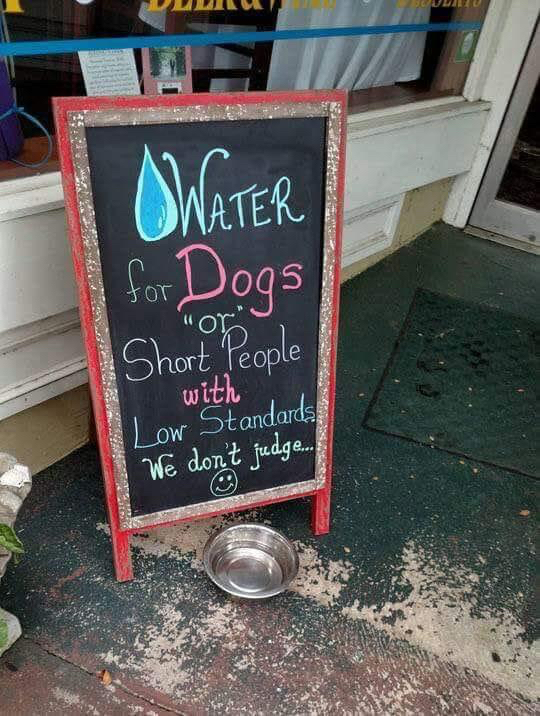 BEER & WINE
DESSERTS
WATER
for Dogs
"or"
Short People
with
Low Standards
We don't judge...